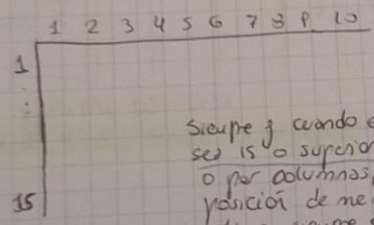 1 2 3 4 5 6 7 8 9 10
1
:
siempre y cuando
sea 15 o superior
o por columnas,
posición de me
15